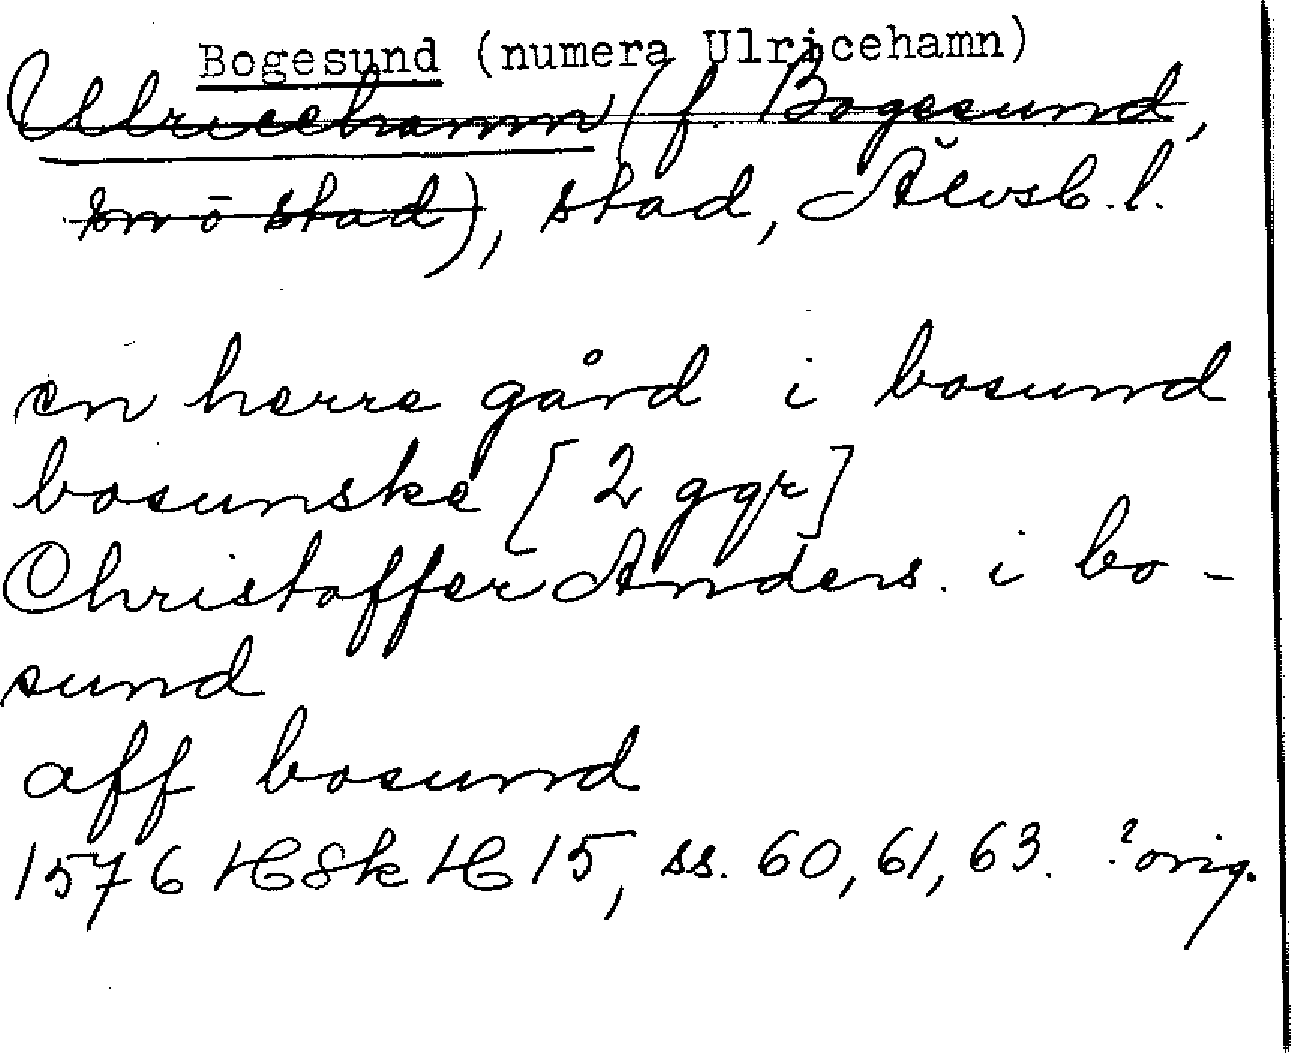 Bogesund (numera Ulricehamn)
Ulricehamn (f. Bogesund,
små stad), stad, Älvsb. l.
en herre gård i bosund
bosunske [2 ggr]
Christoffer Anders. i bo-
sund
aff bosund
1576 H8k H 15, ss. 60, 61, 63. ? orig.